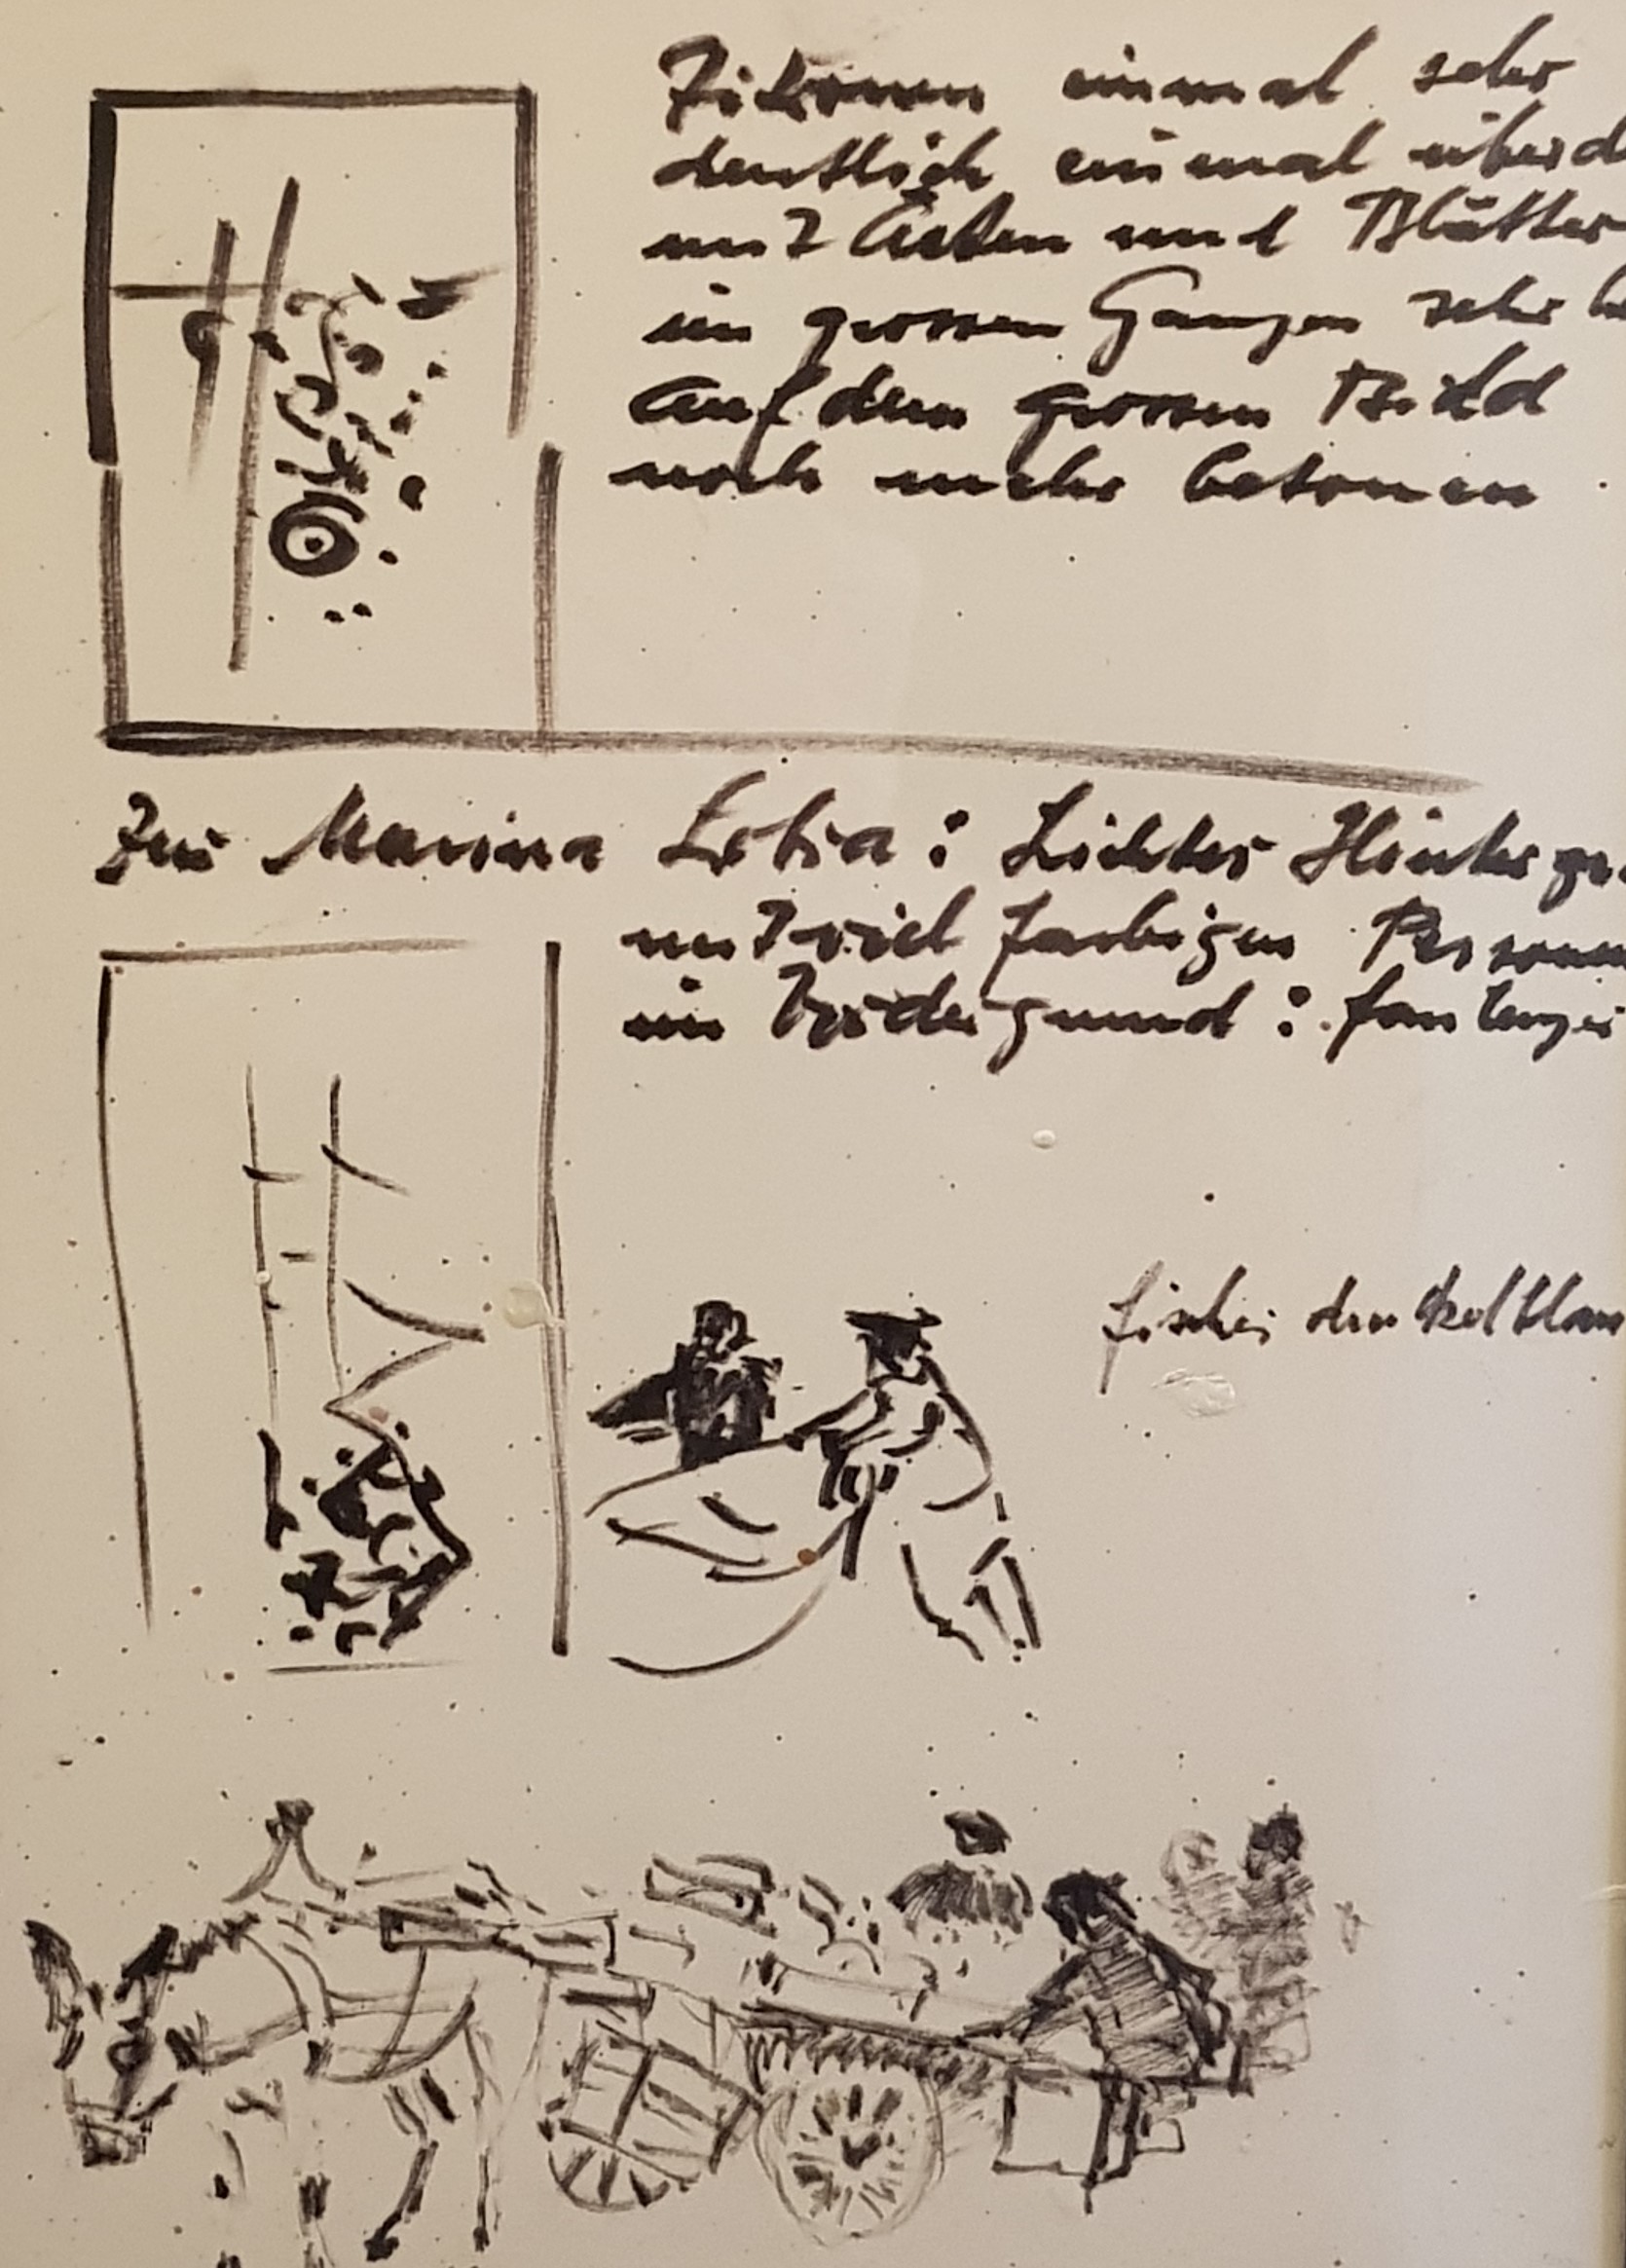 Zitronen einmal sehr
deutlich einmal überd
mit Ästen und Blätter
im grossen Ganzen sehr
Auf dem grossen Bild
noch mehr betonen
Zur Marina Lobia: Lichter Hintergr
mit viel farbigen Personen
im Vordergrund:
Fischer dunkelblau